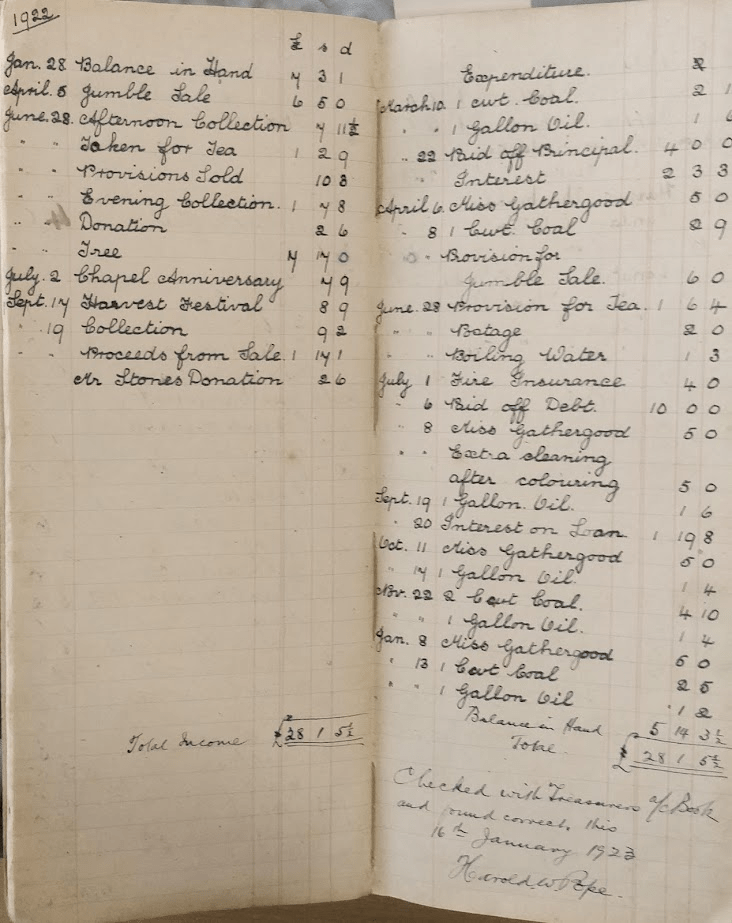 1922
£ s d
Jan. 28 Balance in Hand 7 3 1
April. 5 Jumble Sale 6 5 0
June. 28. Afternoon Collection 7 11½
" " Taken for Tea 1 2 9
" " Provisions Sold 10 3
" " Evening Collection. 1 7 8
" " Donation 2 6
" " Tree 7 17 0
July. 2 Chapel Anniversary 7 9
Sept. 17 Harvest Festival 8 9
" 19 Collection 9 2
" " Proceeds from Sale. 1 17 1
Mr Stones Donation 2 6
Total Income £28 1 5½
Expenditure. £
March 10. 1 cwt. Coal. 2 1
" " 1 Gallon Oil. 1 6
" 22 Paid off Principal. 4 0 0
" Interest 2 3 3
April 6. Miss Gathergood 5 0
" 8 1 Cwt. Coal 2 9
" Provision for
Jumble Sale. 6 0
June. 28 Provision for Tea. 1 6 4
" " Potage 2 0
" " Boiling Water 1 3
July 1 Fire Insurance 4 0
" 6 Paid off Debt. 10 0 0
" 8 Miss Gathergood 5 0
" " Extra cleaning
after colouring 5 0
Sept. 19 1 Gallon. Oil. 1 6
" 20 Interest on Loan 1 19 8
Oct. 11 Miss Gathergood 5 0
" 17 1 Gallon Oil. 1 4
Nov. 22 2 Cwt Coal. 4 10
" " 1 Gallon Oil. 1 4
Jan. 8 Miss Gathergood 5 0
" 13 1 Cwt Coal 2 5
" " 1 Gallon Oil 1 2
Balance in Hand 5 14 3½
Total £28 1 5½
Checked with Treasurers a/c Book
and found correct, this
16th January 1923
Harold W. Pope.